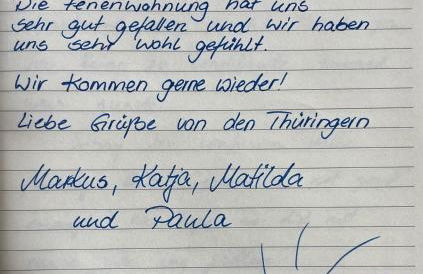 Die Ferienwohnung hat uns
sehr gut gefallen und wir haben
uns sehr wohl gefühlt.
Wir kommen gerne wieder!
Liebe Grüße von den Thüringern
Markus, Katja, Matilda
und Paula